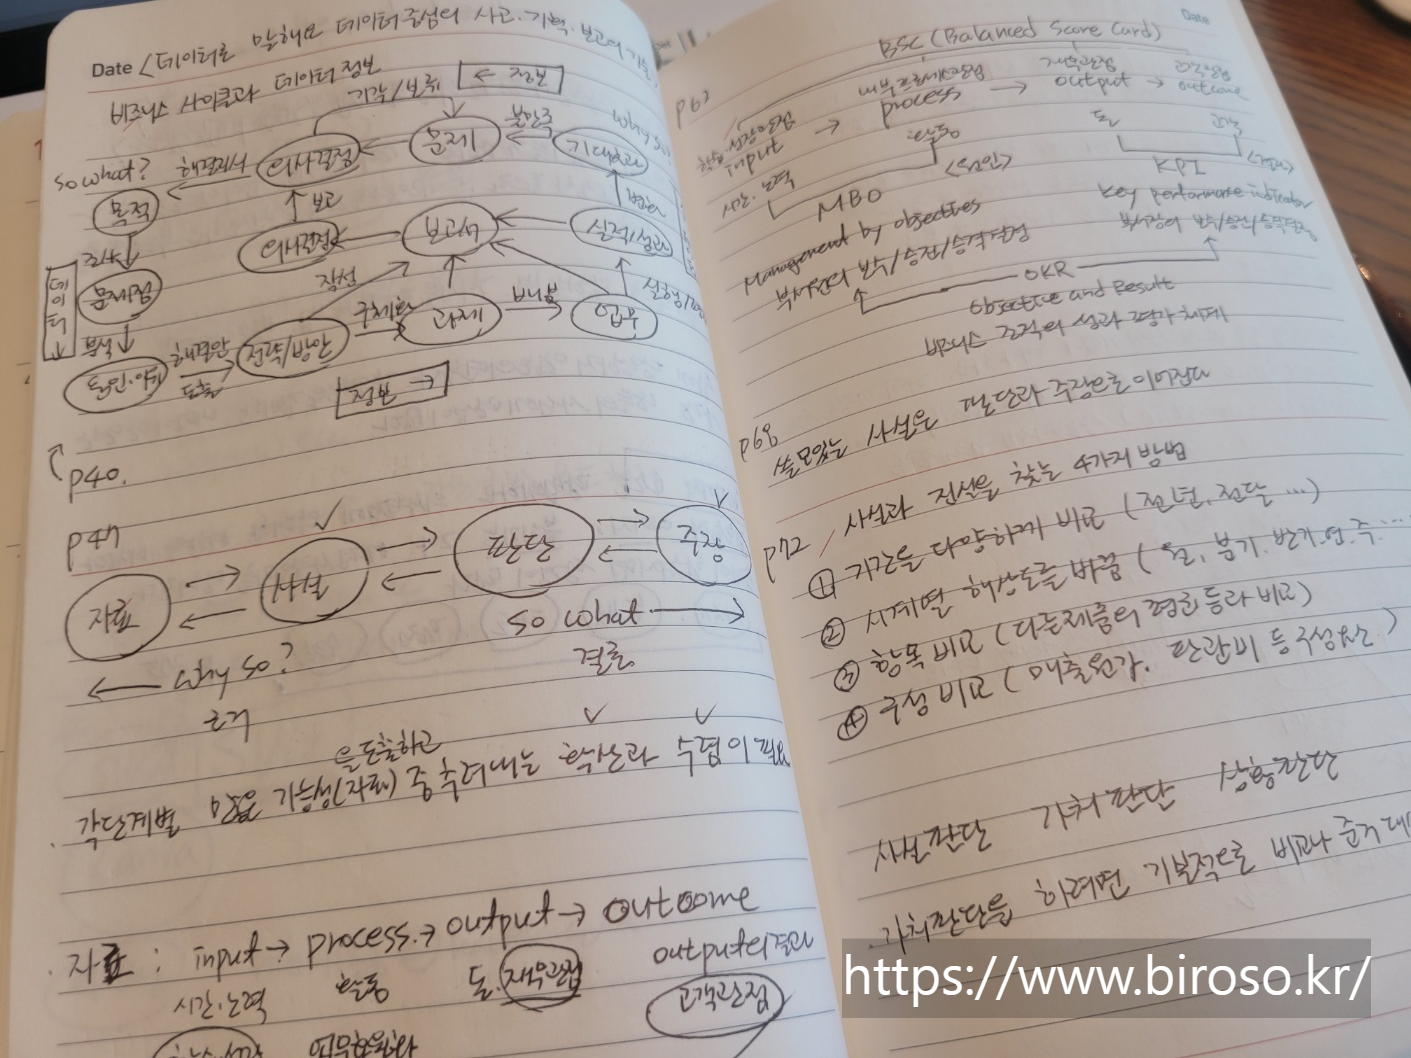 Date <데이터로 말해요 데이터 중심의 사고·기획·보고의 기술
비즈니스 사이클과 데이터 정보
기각/보류
← 정보
so what?
해결과제
의사결정
문제
불만족
기대효과
why so
목적
보고
의사결정
보고서
실적/성과
데이터
문제점
작성
분석
원인·이유
해결안
도출
전략/방안
구체화
과제
배분
업무
정보 →
p40.
p47
자료
사실
판단
주장
why so?
so what
근거
결론
을 도출하고
각 단계별 많은 가능성(자료) 중 추려내는 확산과 수렴이 필요
자료 : input → process → output → outcome
시간·노력
활동
돈. 재무관점
output의 결과
고객관점
Date
BSC (Balanced Score Card)
p63
학습·성장관점
input
시간·노력
→
내부프로세스관점
process
활동
→
재무관점
output
돈
→
고객관점
outcome
고객
<원인>
MBO
Management by objectives
부서원의 보수/승진/승격결정
KPI
<결과>
key performance indicator
부서장의 보수/승진/승격결정
OKR
Objective and Result
비즈니스 조직의 성과 평가 체계
p68
쓸모있는 사실은 판단과 주장으로 이어진다
p72
사실과 진실을 찾는 4가지 방법
① 기간을 다양하게 비교 (전년, 전달 ...)
② 시계열 해상도를 바꿈 (월, 분기, 반기, 연, 주 ...
③ 항목 비교 (다른제품의 평균 등과 비교)
④ 구성 비교 (매출원가, 판관비 등 구성요소)
사실판단 가치판단 상황판단
. 가치판단을 하려면 기본적으로 비교나 준거
https://www.biroso.kr/